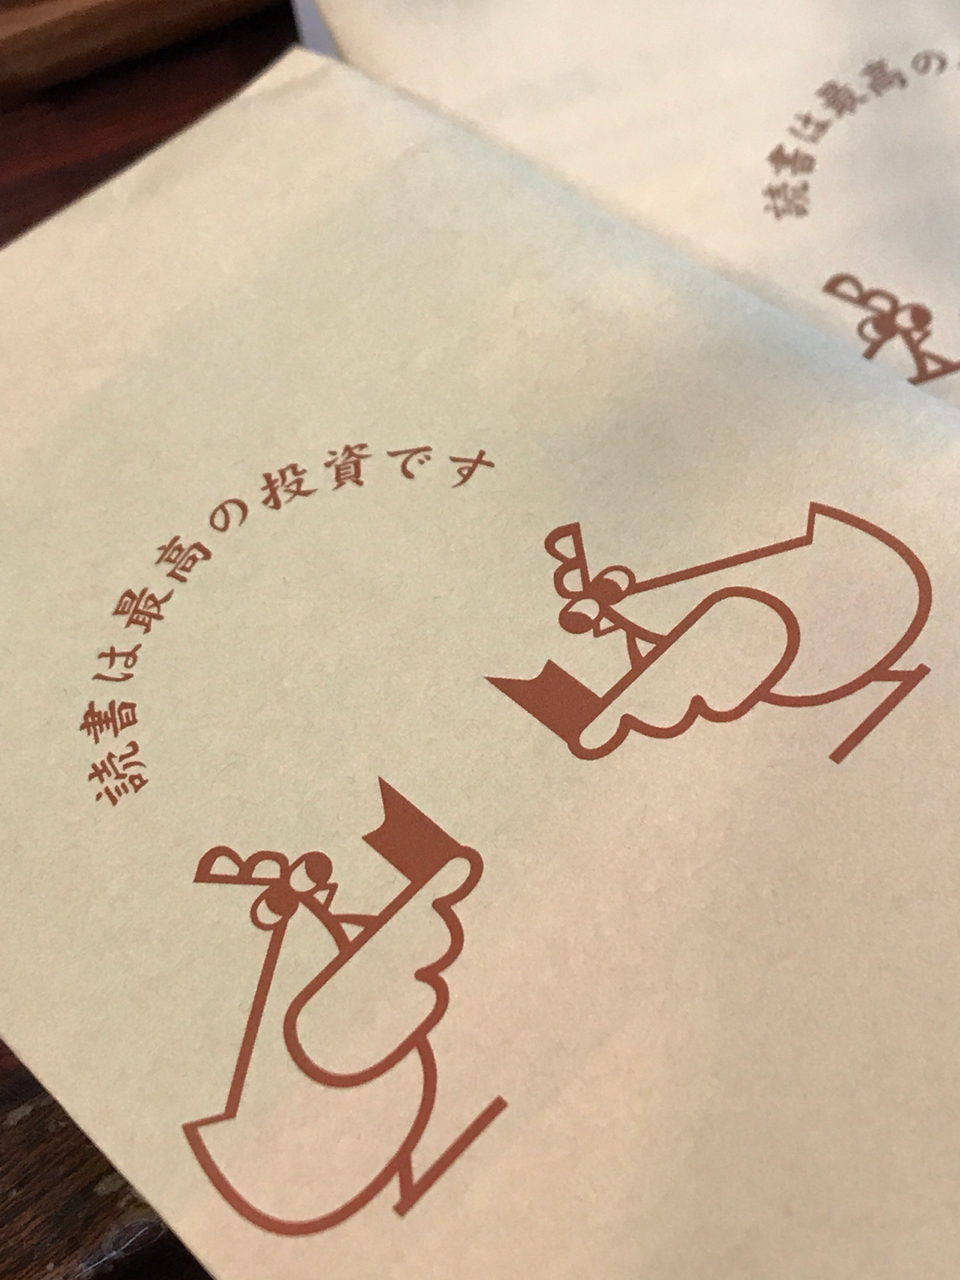 読書は最高の投資です
読書は最高の